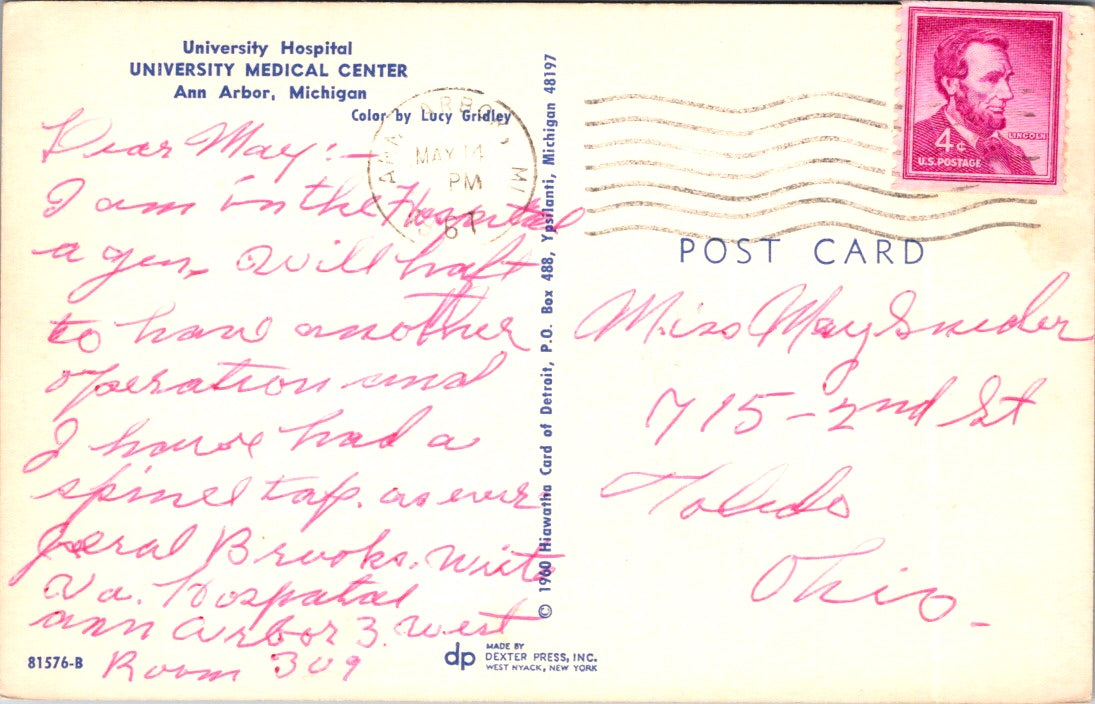 University Hospital
UNIVERSITY MEDICAL CENTER
Ann Arbor, Michigan
Color by Lucy Gridley
Dear May:—
I am in the Hospital
a gen, Will haft
to have another
operation and
I have had a
spinel tap. as ever
Jeral Brooks. write
Va. Hospatal
ann arbor 3. west
Room 309
81576-B
© 1960 Hiawatha Card of Detroit, P.O. Box 488, Ypsilanti, Michigan 48197
ANN ARBOR, MI
MAY 14
PM
LINCOLN
4¢
U.S. POSTAGE
POST CARD
Miss May Snider
715-2nd St
Toledo
Ohio.
dp
MADE BY
DEXTER PRESS, INC.
WEST NYACK, NEW YORK